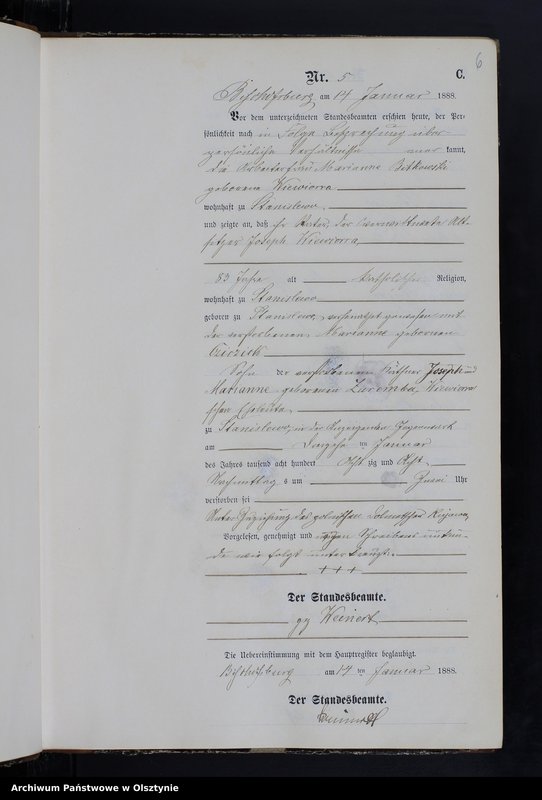 6
Nr. 5
C.
Bischofsburg am 14 Januar 1888.
Vor dem unterzeichneten Standesbeamten erschien heute, der Per-
sönlichkeit nach in Folge Besprechung über
persönliche Verhältnisse aner kannt,
die Arbeiterfrau Marianne Bitkowski
geborene Wiewiorra
wohnhaft zu Stanislewo
und zeigte an, daß ihr Vater, der Alt-
sitzer Joseph Wiewiorra
83 Jahre alt katholischer Religion,
wohnhaft zu Stanislewo
geboren zu Stanislewo, verheirathet gewesen mit
der verstorbenen Marianne geborenen
Sohn der verstorbenen Joseph und
Marianne geborenen Wiewiorra
schen Eheleute
zu Stanislewo, in der Anzeigenden Gegenwart
am ten Januar
des Jahres tausend acht hundert Acht zig und Acht
Nachmittag s um Uhr
verstorben sei
Unter Zuziehung des polnischen Dolmetscher
Vorgelesen, genehmigt und wegen Schreibens unkun-
de wie folgt unterkreuzt.
+++
Der Standesbeamte.
gz Weinert
Die Uebereinstimmung mit dem Hauptregister beglaubigt.
Bischofsburg am 14 ten Januar 1888.
Der Standesbeamte.
Weinert
Archiwum Państwowe w Olsztynie